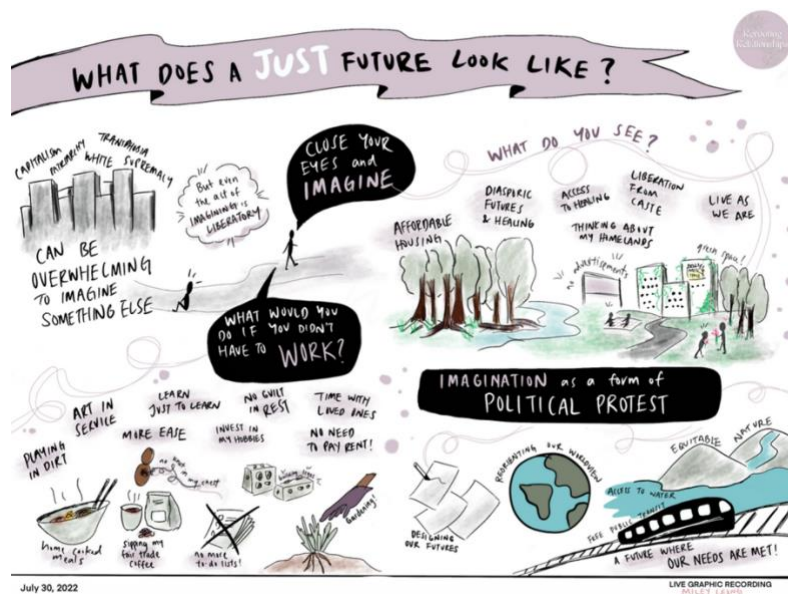 Rerooting
Relationships
WHAT DOES A JUST FUTURE LOOK LIKE?
CAPITALISM
TRANSPHOBIA
WHITE SUPREMACY
CAN BE
OVERWHELMING
TO IMAGINE
SOMETHING ELSE
But even
the act of
IMAGINING is
LIBERATORY
CLOSE YOUR
EYES and
IMAGINE
WHAT WOULD YOU
DO IF YOU DIDN'T
HAVE TO WORK?
WHAT DO YOU SEE?
AFFORDABLE
HOUSING
DIASPORIC
FUTURES
& HEALING
ACCESS
TO HEALING
LIBERATION
FROM
CASTE
LIVE AS
WE ARE
THINKING ABOUT
MY HOMELANDS
no advertisements
green space!
PLAYING
IN DIRT
ART IN
SERVICE
LEARN
JUST TO LEARN
NO GUILT
IN REST
TIME WITH
LOVED ONES
MORE EASE
INVEST IN
MY HOBBIES
NO NEED
TO PAY RENT!
home cooked
meals
sipping my
fair trade
coffee
my chest
no more
to-do lists!
Gardening!
IMAGINATION as a form of
POLITICAL PROTEST
DESIGNING
OUR FUTURES
REORIENTING OUR WORLDVIEW
EQUITABLE
NATURE
ACCESS TO WATER
FREE PUBLIC TRANSIT
A FUTURE WHERE
OUR NEEDS ARE MET!
July 30, 2022
LIVE GRAPHIC RECORDING
MILEY LEONG